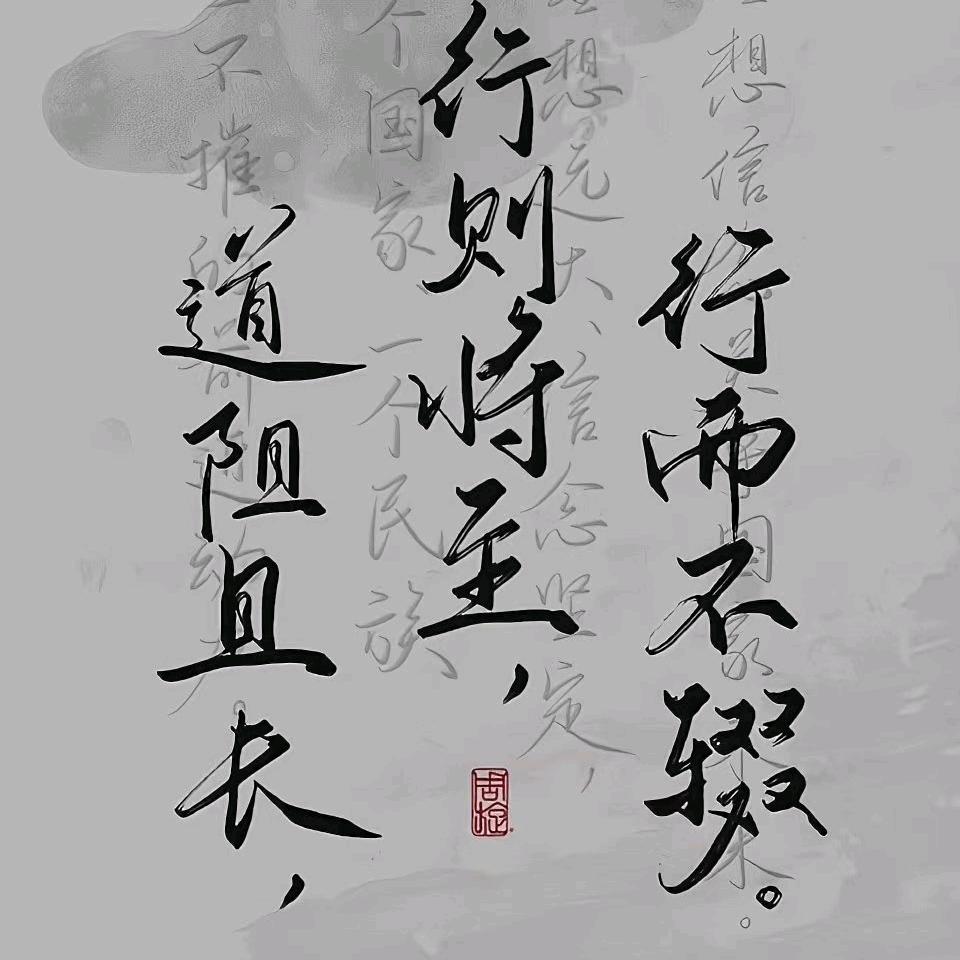 道阻且长，
行则将至，
行而不辍。
想信
想远大、信念坚定，
个国家、一个民族、
不摧